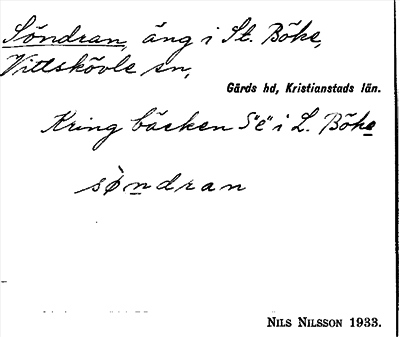 Söndran, äng i St. Böke,
Vittskövle sn,
Gärds hd, Kristianstads län.
Kring bäcken S"e" i L. Böke
sø̀ndran
NILS NILSSON 1933.